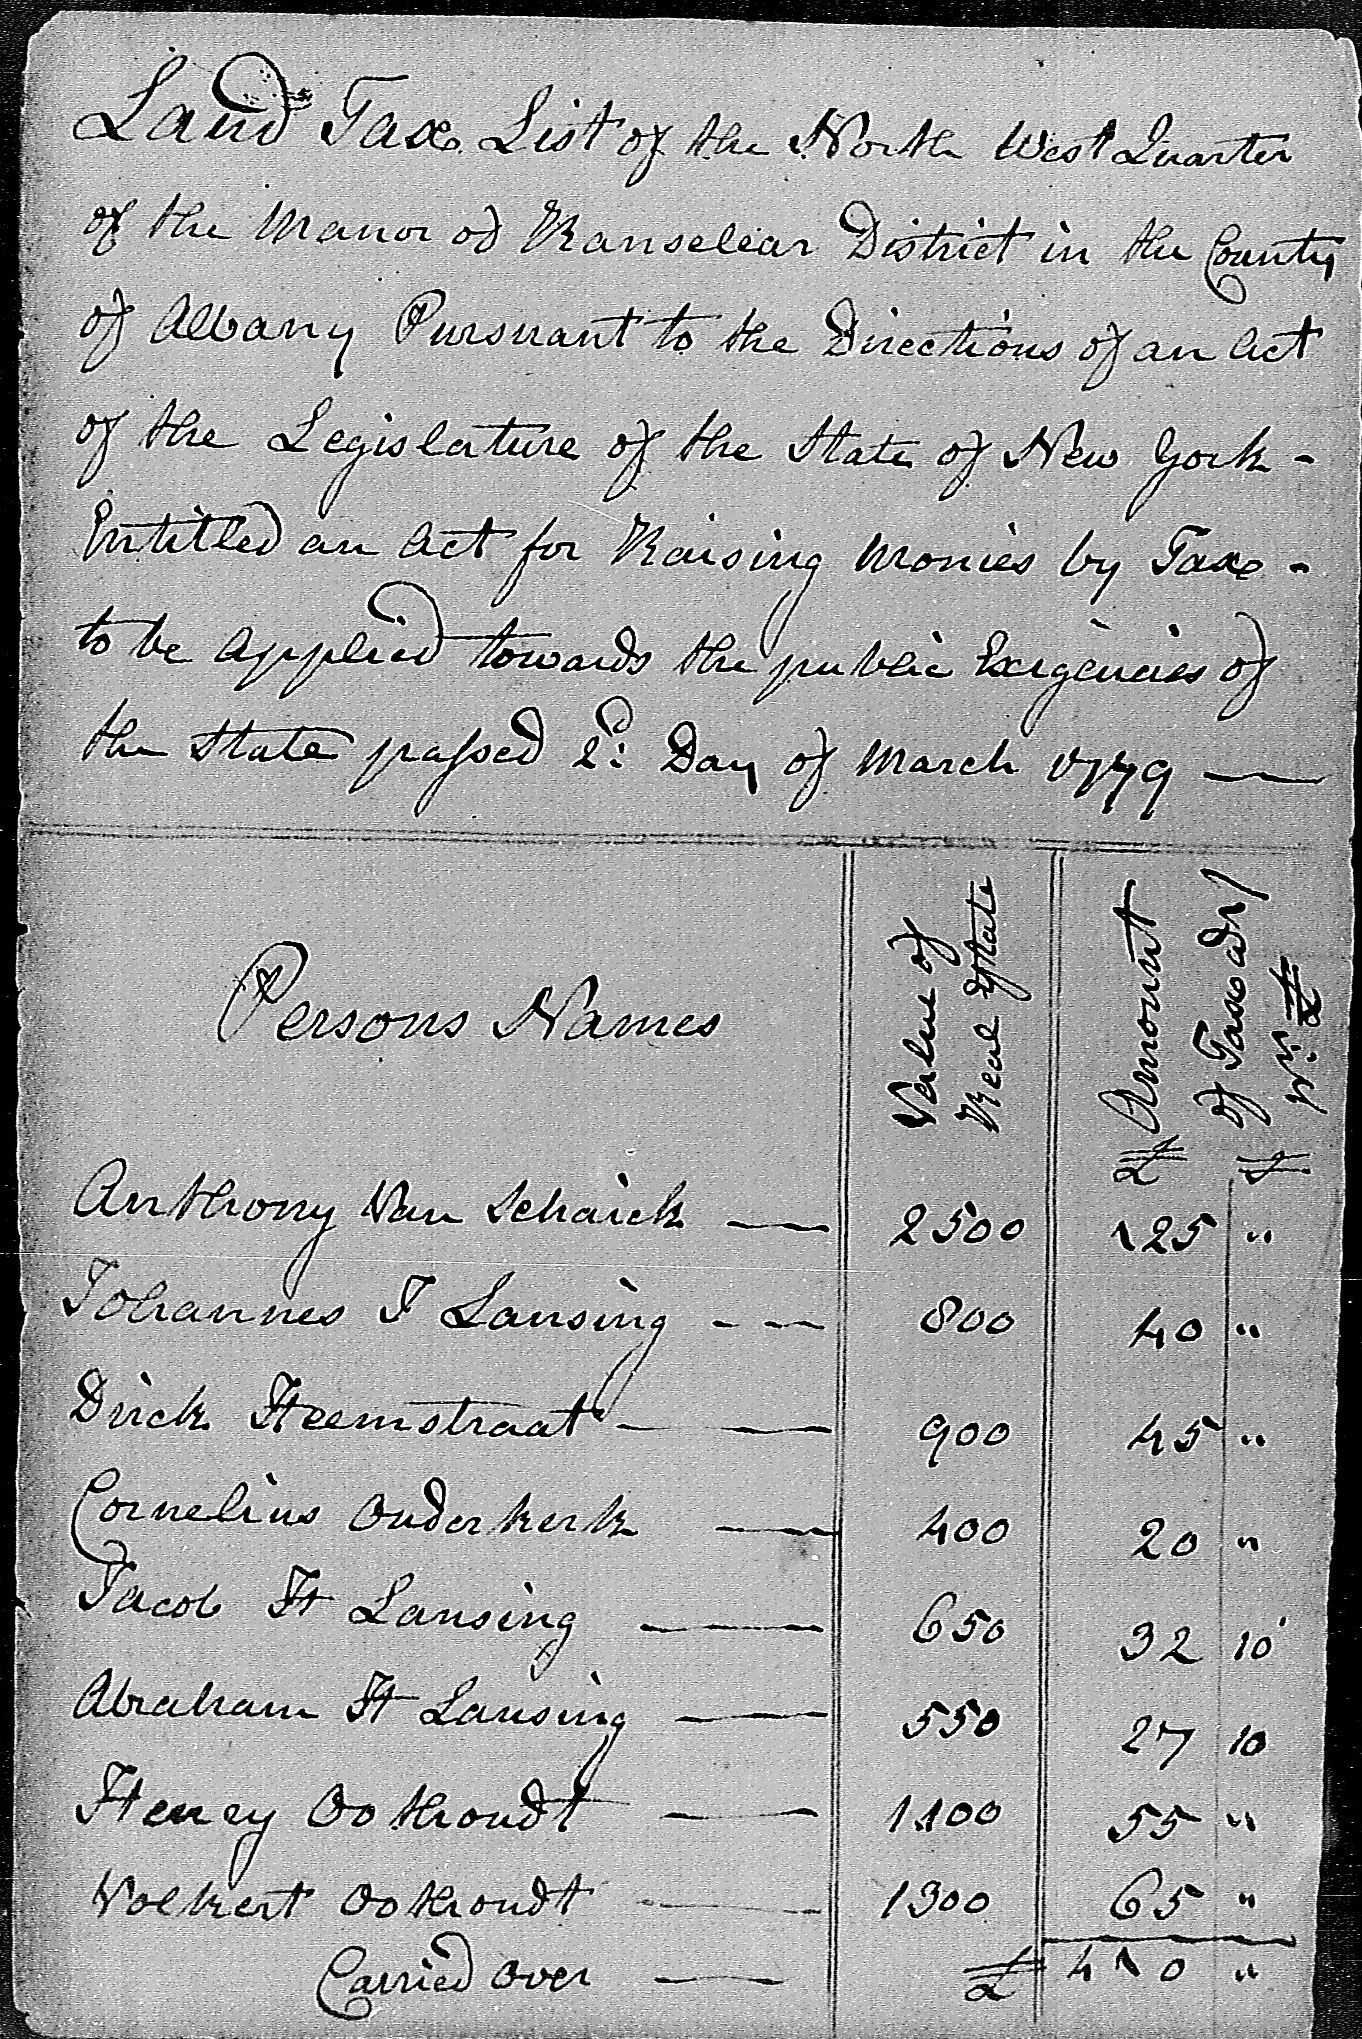 Land Tax List of the North West Quarter
of the Manor of Ranselear District in the County
of Albany Pursuant to the Directions of an Act
of the Legislature of the State of New York -
Entitled an Act for Raising Monies by Tax -
to be applied towards the public Exigencies of
the State passed 2d: Day of March 1779 —
Persons Names
Value of
Real Estate
Amount
of Tax
pr. £
£
Anthony Van Schaick — 2500 125 "
Johannes J Lansing - - - 800 40 "
Dirck Heemstraat — 900 45 "
Cornelius Ouderkerk — 400 20 "
Jacob H Lansing — 650 32 10
Abraham H Lansing — 550 27 10
Henry Oothoudt — 1100 55 "
Volkert Oothoudt — 1300 65 "
Carried Over — £ 410 "